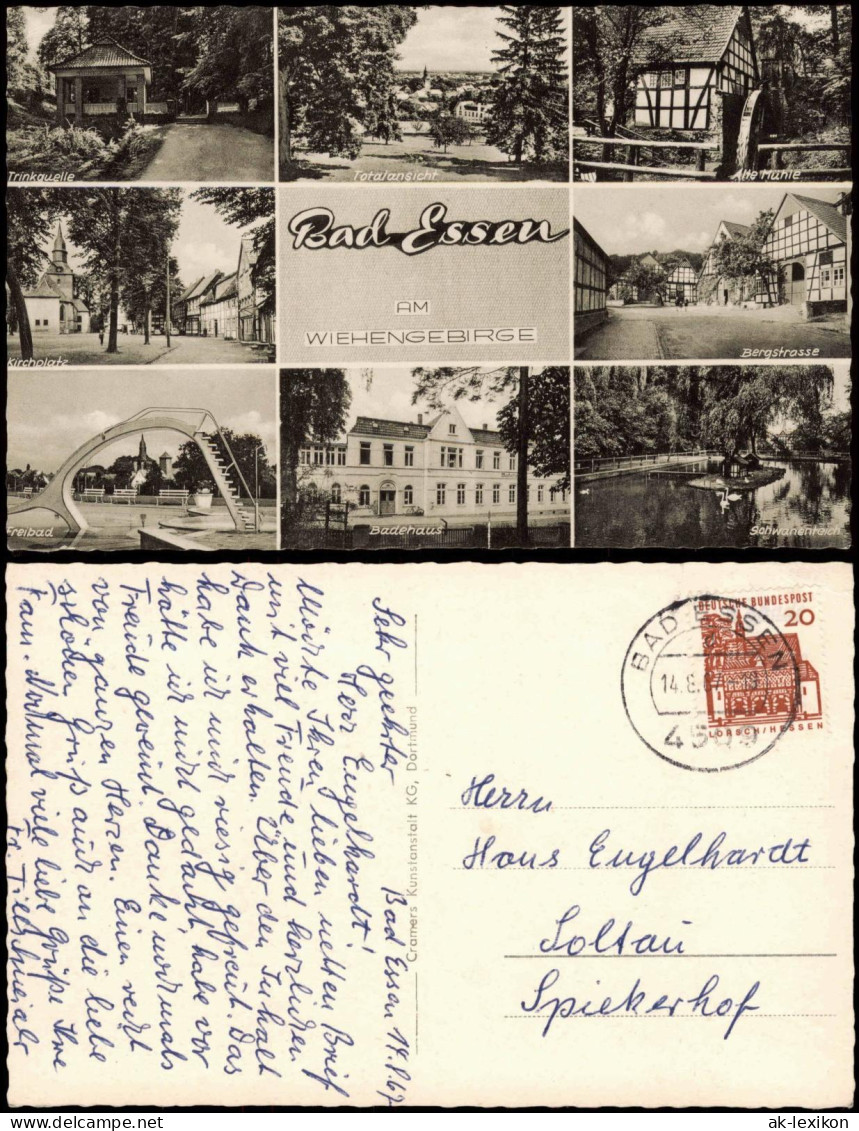 Trinkquelle
Totalansicht
Alte Mühle
Kirchplatz
Bad Essen
AM
WIEHENGEBIRGE
Bergstrasse
Freibad
Badehaus
Schwanenteich
Bad Essen 14.8.67
Sehr geehrter
Herr Engelhardt!
Möchte Ihren lieben netten Brief
mit viel Freude und herzlichen
Dank erhalten. Über den Inhalt
habe ich mich riesig gefreut. Das
hätte ich nicht gedacht, habe vor
Freude geweint. Danke nochmals
von ganzen Herzen. Einen recht
schönen Gruß auch an die liebe
Fam. Nochmal viele liebe Grüße Ihre
Fr.
Cramers Kunstanstalt KG, Dortmund
DEUTSCHE BUNDESPOST
20
LORSCH/HESSEN
BAD ESSEN
14.8.67
4509
Herrn
Hans Engelhardt
Soltau
Spiekerhof
ak-lexikon.com